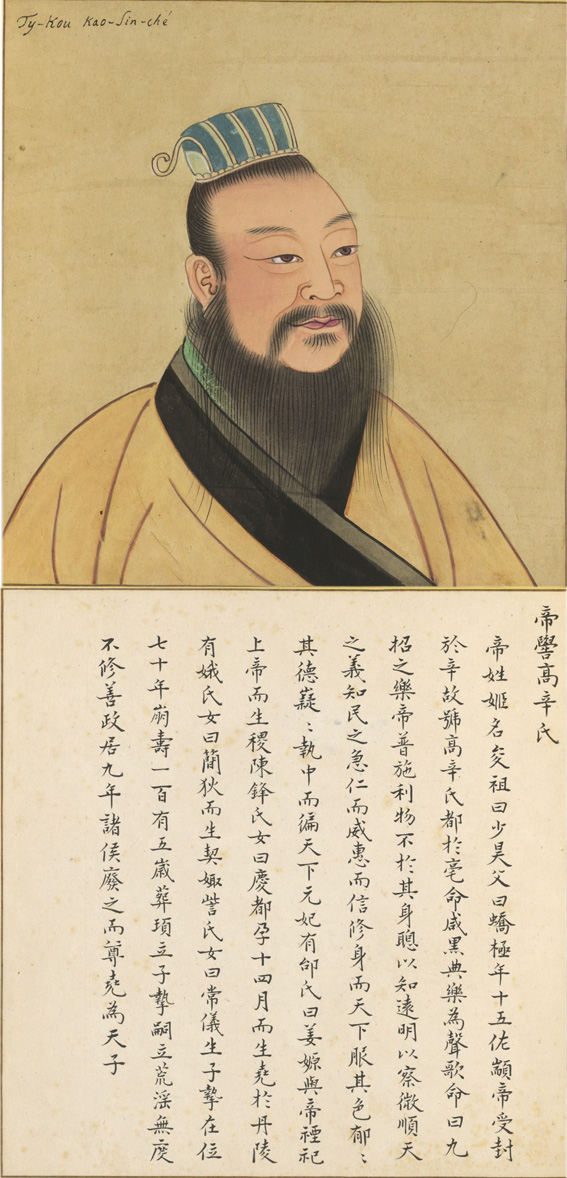 Ty-Kou Kao-Sin-ché
帝嚳髙辛氏
帝姓姬名夋祖曰少昊父曰蟜極年十五佐顓帝受封
於辛故號髙辛氏都於亳命咸黑典樂為聲歌命曰九
招之樂帝普施利物不於其身聰以知遠明以察微順天
之義知民之急仁而威惠而信修身而天下服其色郁〻
其德嶷〻執中而徧天下元妃有邰氏曰姜嫄與帝禋祀
上帝而生稷陳鋒氏女曰慶都孕十四月而生堯於丹陵
有娥氏女曰簡狄而生契娵訾氏女曰常儀生子摯在位
七十年崩壽一百有五歲葬頊立子摯嗣立荒淫無度
不修善政居九年諸侯廢之而尊堯為天子